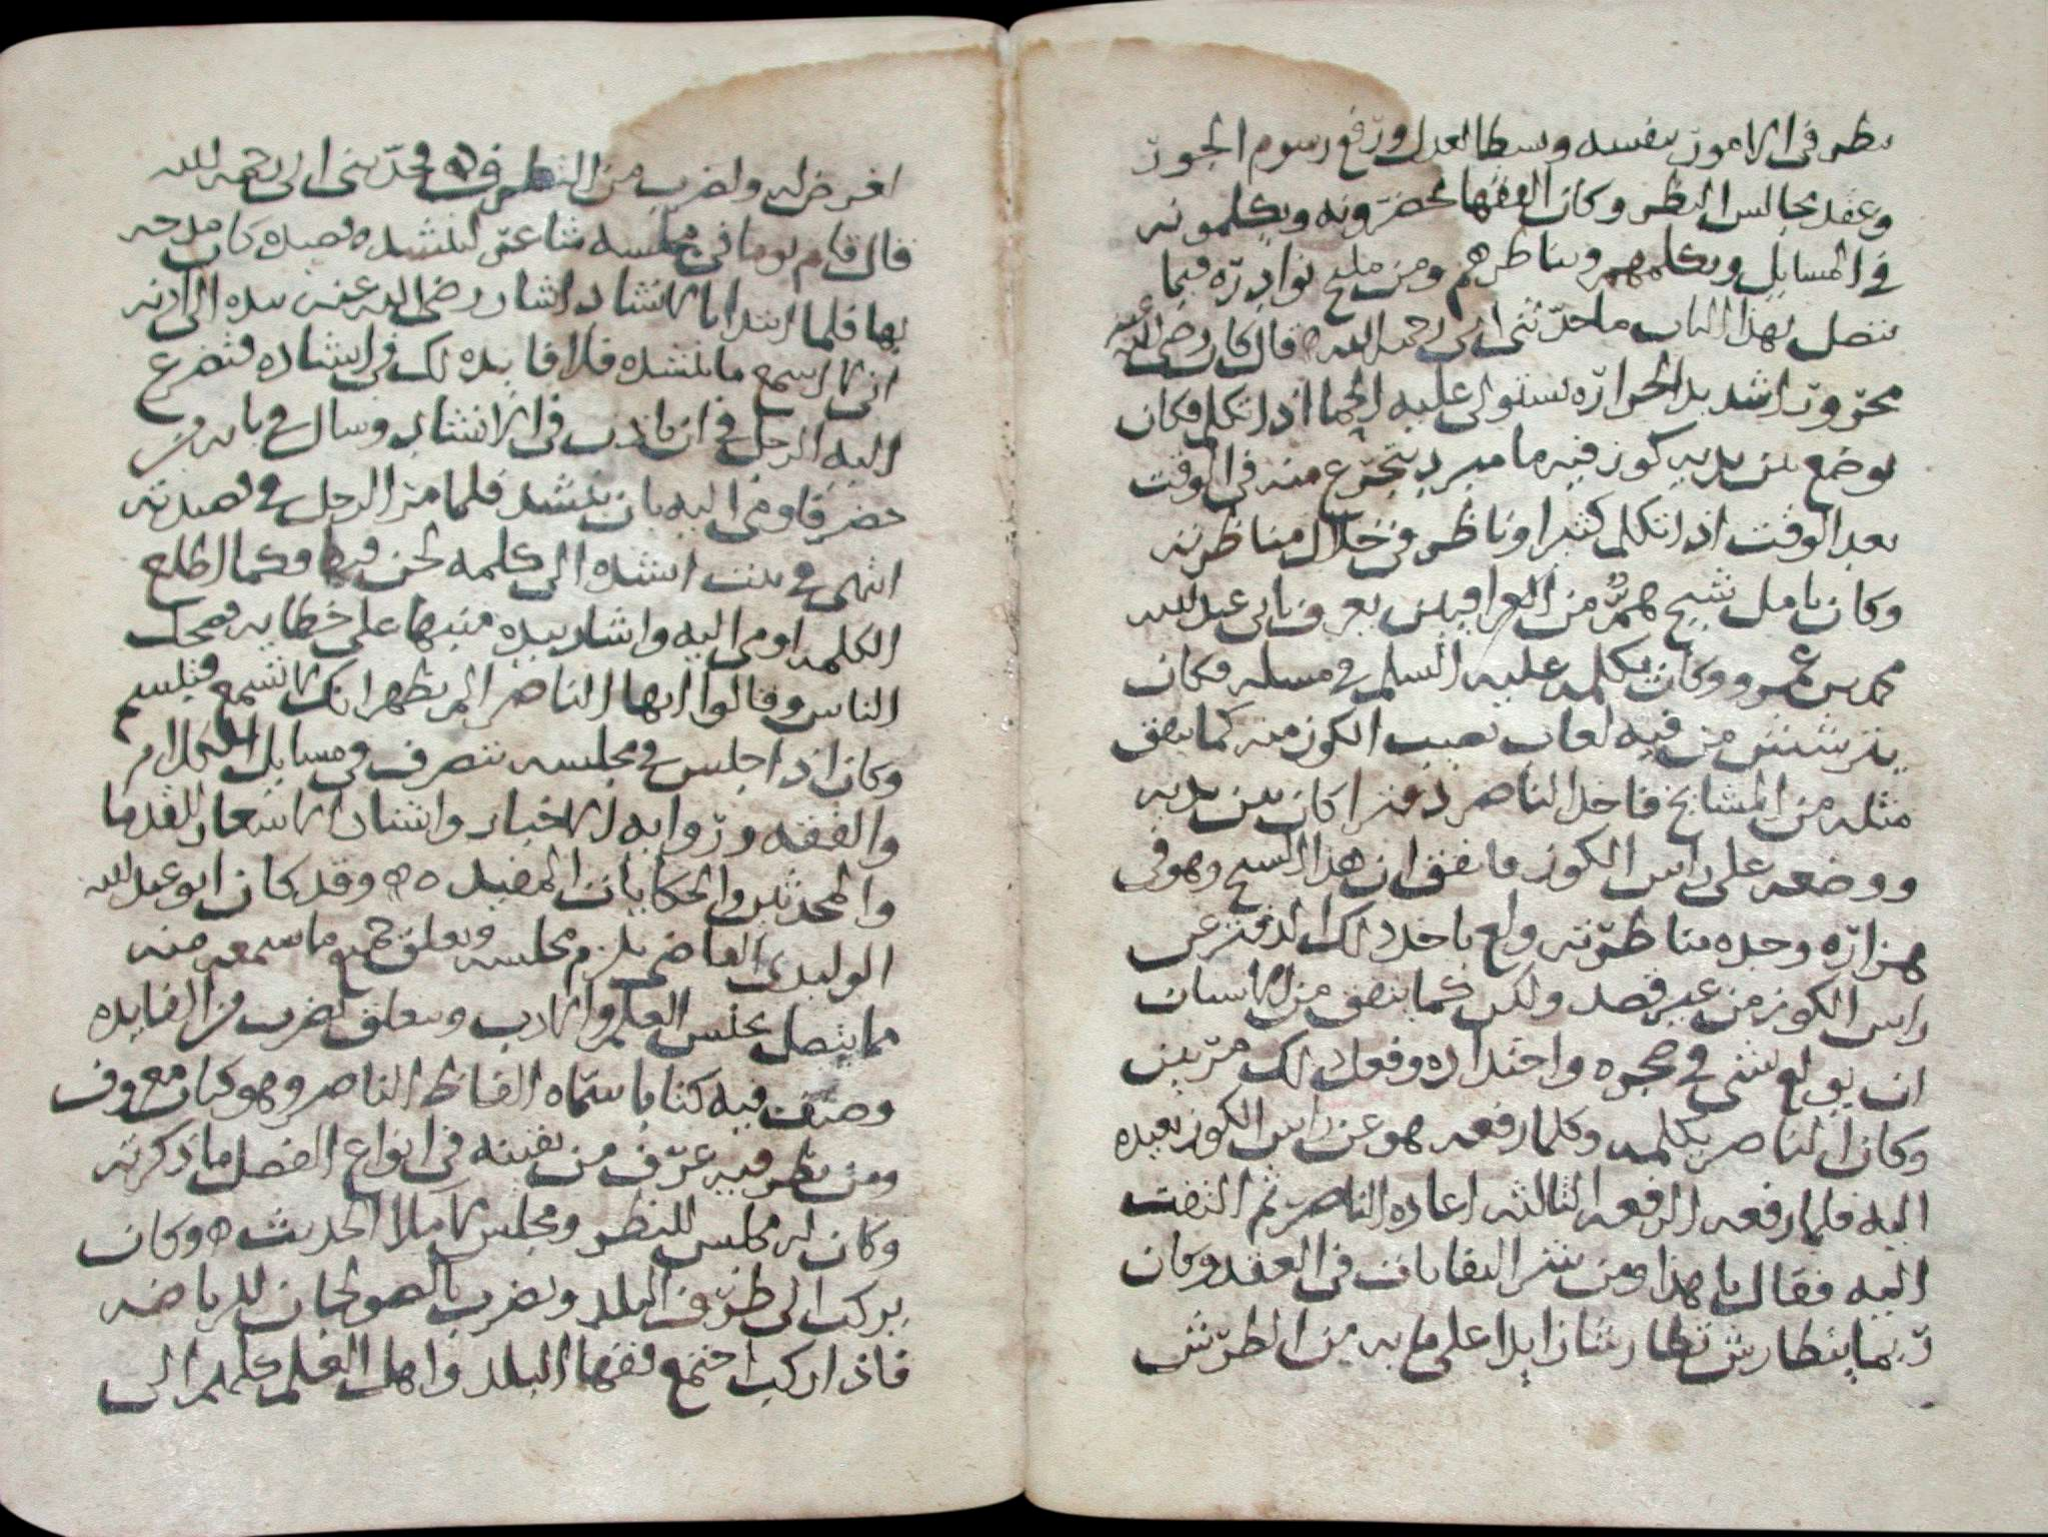 نظر في الامور بنفسه وبسط العدل ورفع رسوم الجور
وعقد مجالس النظر وكان الفقها يحضرونه ويكلمونه
في المسايل ويكلمهم ويناظرهم ومن مليح نوادره فيما
يتصل بهذا الباب ما حدثني ابي رحمه الله قال كان رضي الله عنه
محرورا شديد الحرارة يستولي عليه الحما اذا تكلم فكان
يوضع بين يديه كوز فيه ما مبرد يتجرع منه في الوقت
بعد الوقت اذا تكلم كثيرا وناظر في خلال مناظرته
وكان بامل شيخ هم من العراقيين يعرف بابي عبد الله
محمد بن عمرو وكان يكلمه عليه السلم في مسله فكان
يترشش من فيه لعاب يصيب الكوز منه كما يتفق
مثله من المشايخ فاخذ الناصر دفترا كان بين يديه
ووضعه على راس الكوز فاتفق ان هذا الشيخ وهو في
هزازه وحده مناظرته ولع باخذ ذلك الدفتر عن
راس الكوز من غير قصد ولكن كما يتفق من الانسان
ان يولع بشي في ضجره واحتداده وفعل ذلك مرتين
وكان الناصر يكلمه وكلما رفعه هو عن راس الكوز يعيده
اليه فلما رفعه الرفعه الثالثه اعاده الناصر ثم التفت
اليه فقال يا هذا ومن شر النفاثات في العقد وكان
ربما يتطارش تطارشا زايدا على ما به من الطرش
لغرض له ولضرب من النظرف فحدثني ابي رحمه الله
قال قام يوما في مجلسه شاعر لينشده قصيده كان مدحه
بها فلما ابتدا بالانشاد اشار رضي الله عنه بيده الى اذنه
اني لا اسمع ما تنشده فلا فايده لك في انشاده فتضرع
اليه الرجل في ان ياذن في الانشاد وسال في بابه من
حضر فاومى اليه بان ينشد فلما مر الرجل في قصيدته
انتهى في بيت انشده الى كلمه لحن فيها فكما اطلع
الكلمه اومى اليه واشار بيده منبها على خطايه فضحك
الناس وقالوا ايها الناصر الم تظهر انك لا تسمع فتبسم
وكان اذا جلس في مجلسه يتصرف في مسايل الكلام
والفقه ورواية الاخبار وانشاد الاشعار للقدما
والمحدثين والحكايات المفيده وقد كان ابو عبد الله
الوليدي القاضي يلزم مجلسه ويعلق جميع ما سمعه منه
مما يتصل بمجلس العلم والادب ويتعلق بضرب من الفايده
وصنف فيه كتابا سماه الفاظ الناصر وهو كتاب معروف
ومن نظر فيه عرف من تفننه في انواع الفضل ما ذكرته
وكان له مجلس للنظر ومجلس لاملا الحديث وكان
يركب الى طرف البلد ويضرب بالصولجان للرياضه
فاذا ركب اجتمع فقها البلد واهل العلم كلهم الى